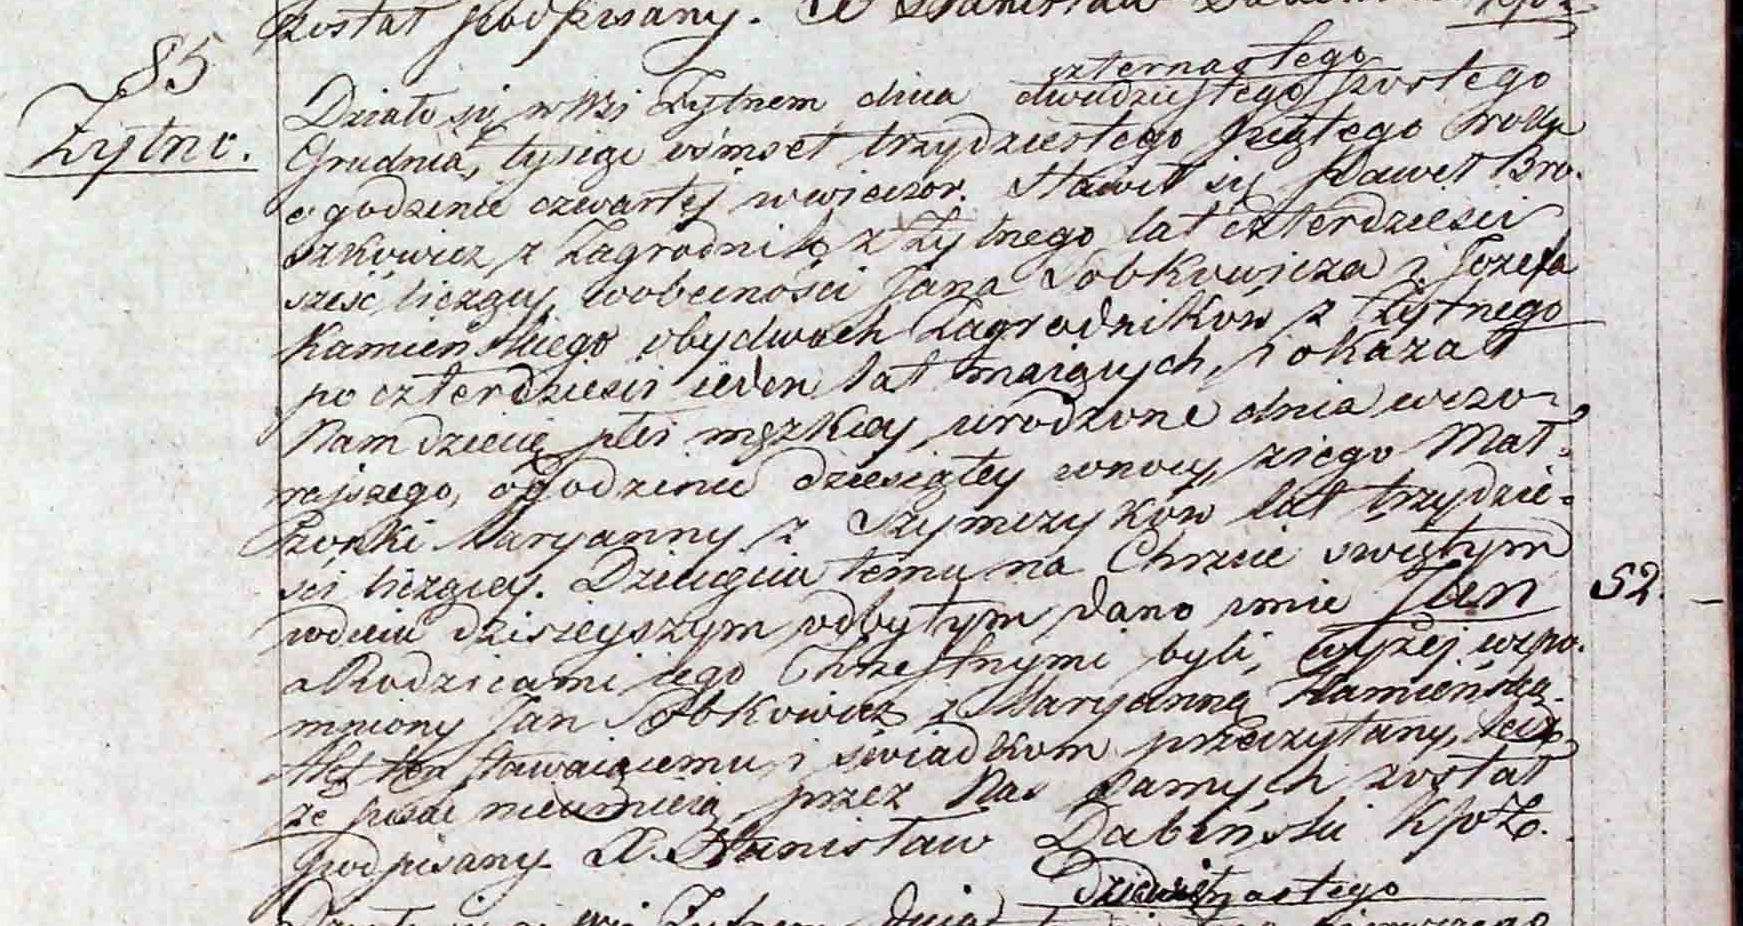 został podpisany. X Stanisław
85
Żytno.
czternastego
Działo się w Wsi Żytnem, dnia dwudziestego szostego
Grudnia, tysiąc ośmset trzydziestego piątego roku
o godzinie czwartej w wieczor. Stawił się Paweł Bro-
szkowicz z Zagrodnik z Żytnego lat czterdzieści
sześć liczący, w obecności Jana Sobkowicza i Jozefa
Kamieńskiego obydwoch Zagrodnikow z Żytnego
po czterdzieści ieden lat maiących, i okazał
Nam dziecię płci męzkiey, urodzone dnia wczo-
rajszego, o godzinie dziesiątey w nocy, z iego Mał-
żonki Maryanny z Szymczykow lat trzydzie-
ści liczącey. Dziecięciu temu na Chrzcie świętym
w dniu dzisieyszym odbytym dano imie Jan
a Rodzicami iego Chrzestnymi byli, wyżej wspo-
mniony Jan Sobkowicz i Maryanna Kamieńska.
Akt ten stawaiącemu i świadkom przeczytany, lecz
że pisać nieumieią, przez Nas samych został
podpisany. X. Stanisław Dabiński KpŻ.
52.
Dziewiętnastego
Działo się w Wsi Żytnem, dnia pierwszego